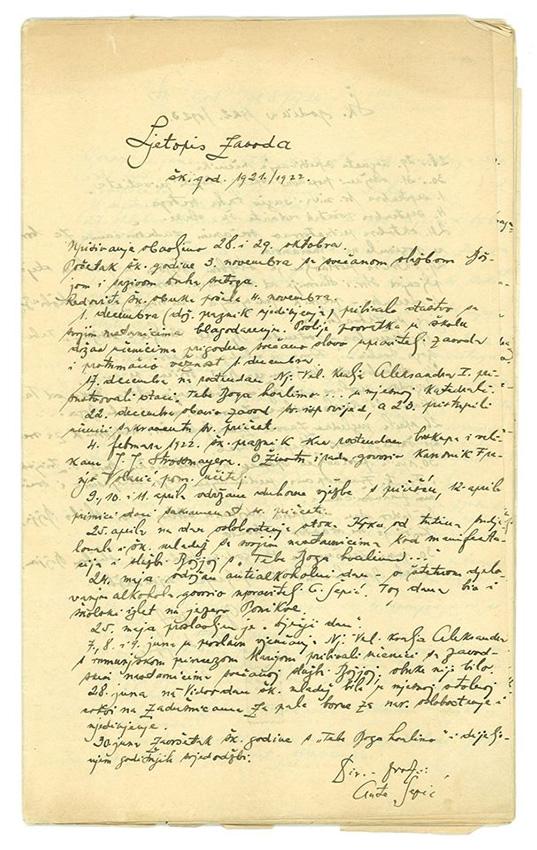 Ljetopis zavoda
šk. god. 1921./1922.
Upisivanje obavljeno 28. i 29. oktobra.
Početak šk. godine 3. novembra sa svečanom službom Bož-
jom i zazivom Duha svetoga.
Redovita šk. obuka počela 4. novembra.
1. decembra (drž. praznik ujedinjenja) prisustvovalo đaštvo sa
svojim nastavnicima blagodarenju. Poslije povratka u školu
održao učenicima prigodno svečano slovo upravitelj zavoda
i protumačio važnost 1. decembra.
17. decembra na rođendan Nj. Vel. Kralja Aleksandra I. pri-
sustvovali đaci „Tebe Boga hvalimo..." u mjesnoj katedrali.
22. decembra obavio zavod sv. ispovijed, a 23. pristupili
učenici sakramentu sv. pričesti.
4. februara 1922. šk. praznik kao rođendan biskupa i veli-
kana J. J. Strossmayera. O životu i radu govorio kanonik
Volarić,
9., 10. i 11. aprila održane duhovne vježbe s pričešću, 12. aprila
primici đaci sakramenat sv. pričesti.
25. aprila na dan oslobođenja otok Krka od tuđina sudje-
lovala i šk. mladež sa svojim nastavnicima kod manifesta-
cija i službi Božjoj s „Tebe Boga hvalimo..."
24. maja održan antialkoholni dan – o štetnom djelo-
vanju alkohola govorio upravitelj A. Sepić. Tog dana bio i
školski izlet na jezero Ponikve.
25. maja proslavljen je „dječji dan".
7., 8. i 9. juna u proslavi vjenčanja Nj. Vel. Kralja Aleksandra
s rumunjskom princezom Marijom prisustvovali učenici sa zavod-
skim nastavnicima svečanoj službi Božjoj; obuke nije bilo.
28. juna na Vidov-dan šk. mladež bila u mjesnoj stolnoj
crkvi na zadušnicama za pale borce za nar. oslobođenje i
ujedinjenje.
30. juna završetak šk. godine s „Tebe Boga hvalimo" i dijelje-
njem godišnjih svjedodžbi.
Dir. – prof.:
Ante Sepić